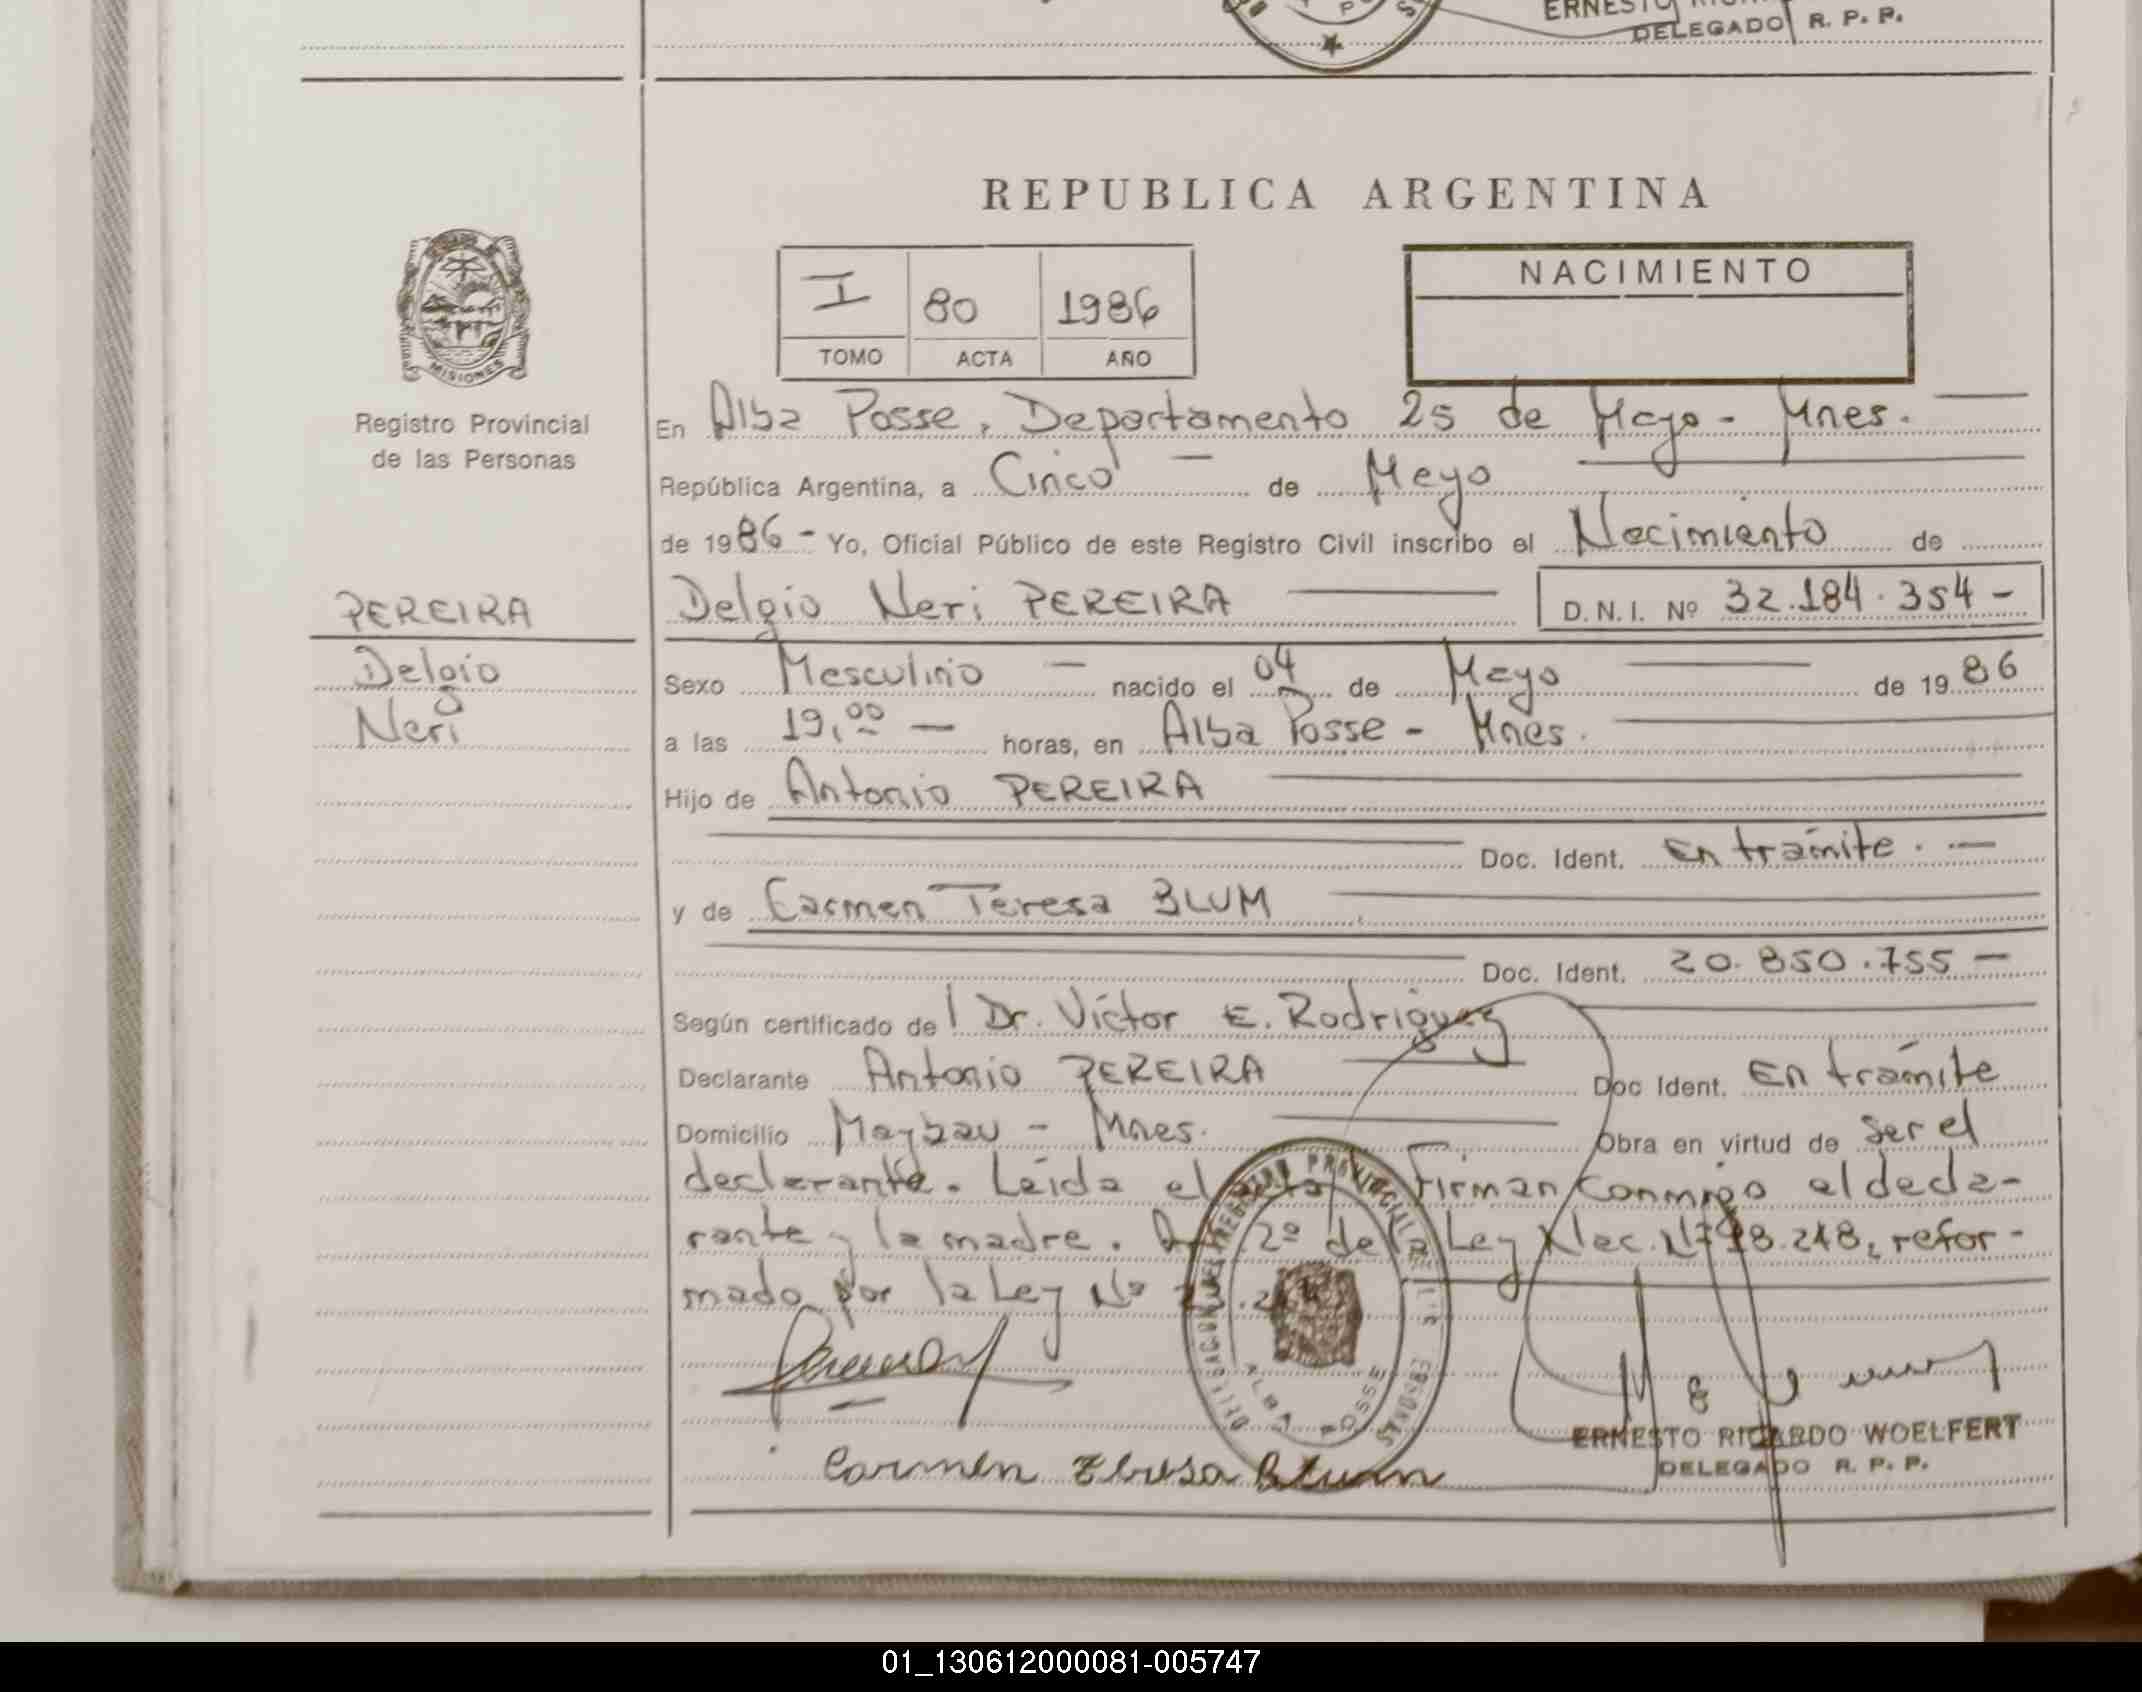 ERNESTO
DELEGADO R. P. P.
REPUBLICA ARGENTINA
NACIMIENTO
I 80 1986
TOMO ACTA AÑO
MISIONES
Registro Provincial
de las Personas
En Alba Posse, Departamento 25 de Mayo - Mnes.
República Argentina, a Cinco — de Mayo
de 1986 - Yo, Oficial Público de este Registro Civil inscribo el Nacimiento de
PEREIRA
Delgio
Neri
Delgio Neri PEREIRA — D.N.I. Nº 32.184.354 -
Sexo Masculino — nacido el 04 de Mayo — de 1986
a las 19,00 — horas, en Alba Posse - Mnes.
Hijo de Antonio PEREIRA
Doc. Ident. En trámite. —
y de Carmen Teresa BLUM
Doc. Ident. 20.850.755 —
Según certificado del Dr. Victor E. Rodriguez
Declarante Antonio PEREIRA — Doc Ident. En trámite
Domicilio Maybau - Mnes. — Obra en virtud de ser el
declarante. Leída el acta Firman conmigo el decla-
rante y la madre. 2º de la Ley Nac. Nº 18.248, refor-
mado por la Ley Nº
DELEGACION DEL REGISTRO PROVINCIAL DE LAS PERSONAS
ALBA POSSE
Carmen Teresa Blum
ERNESTO RICARDO WOELFERT
DELEGADO R. P. P.
01_130612000081-005747